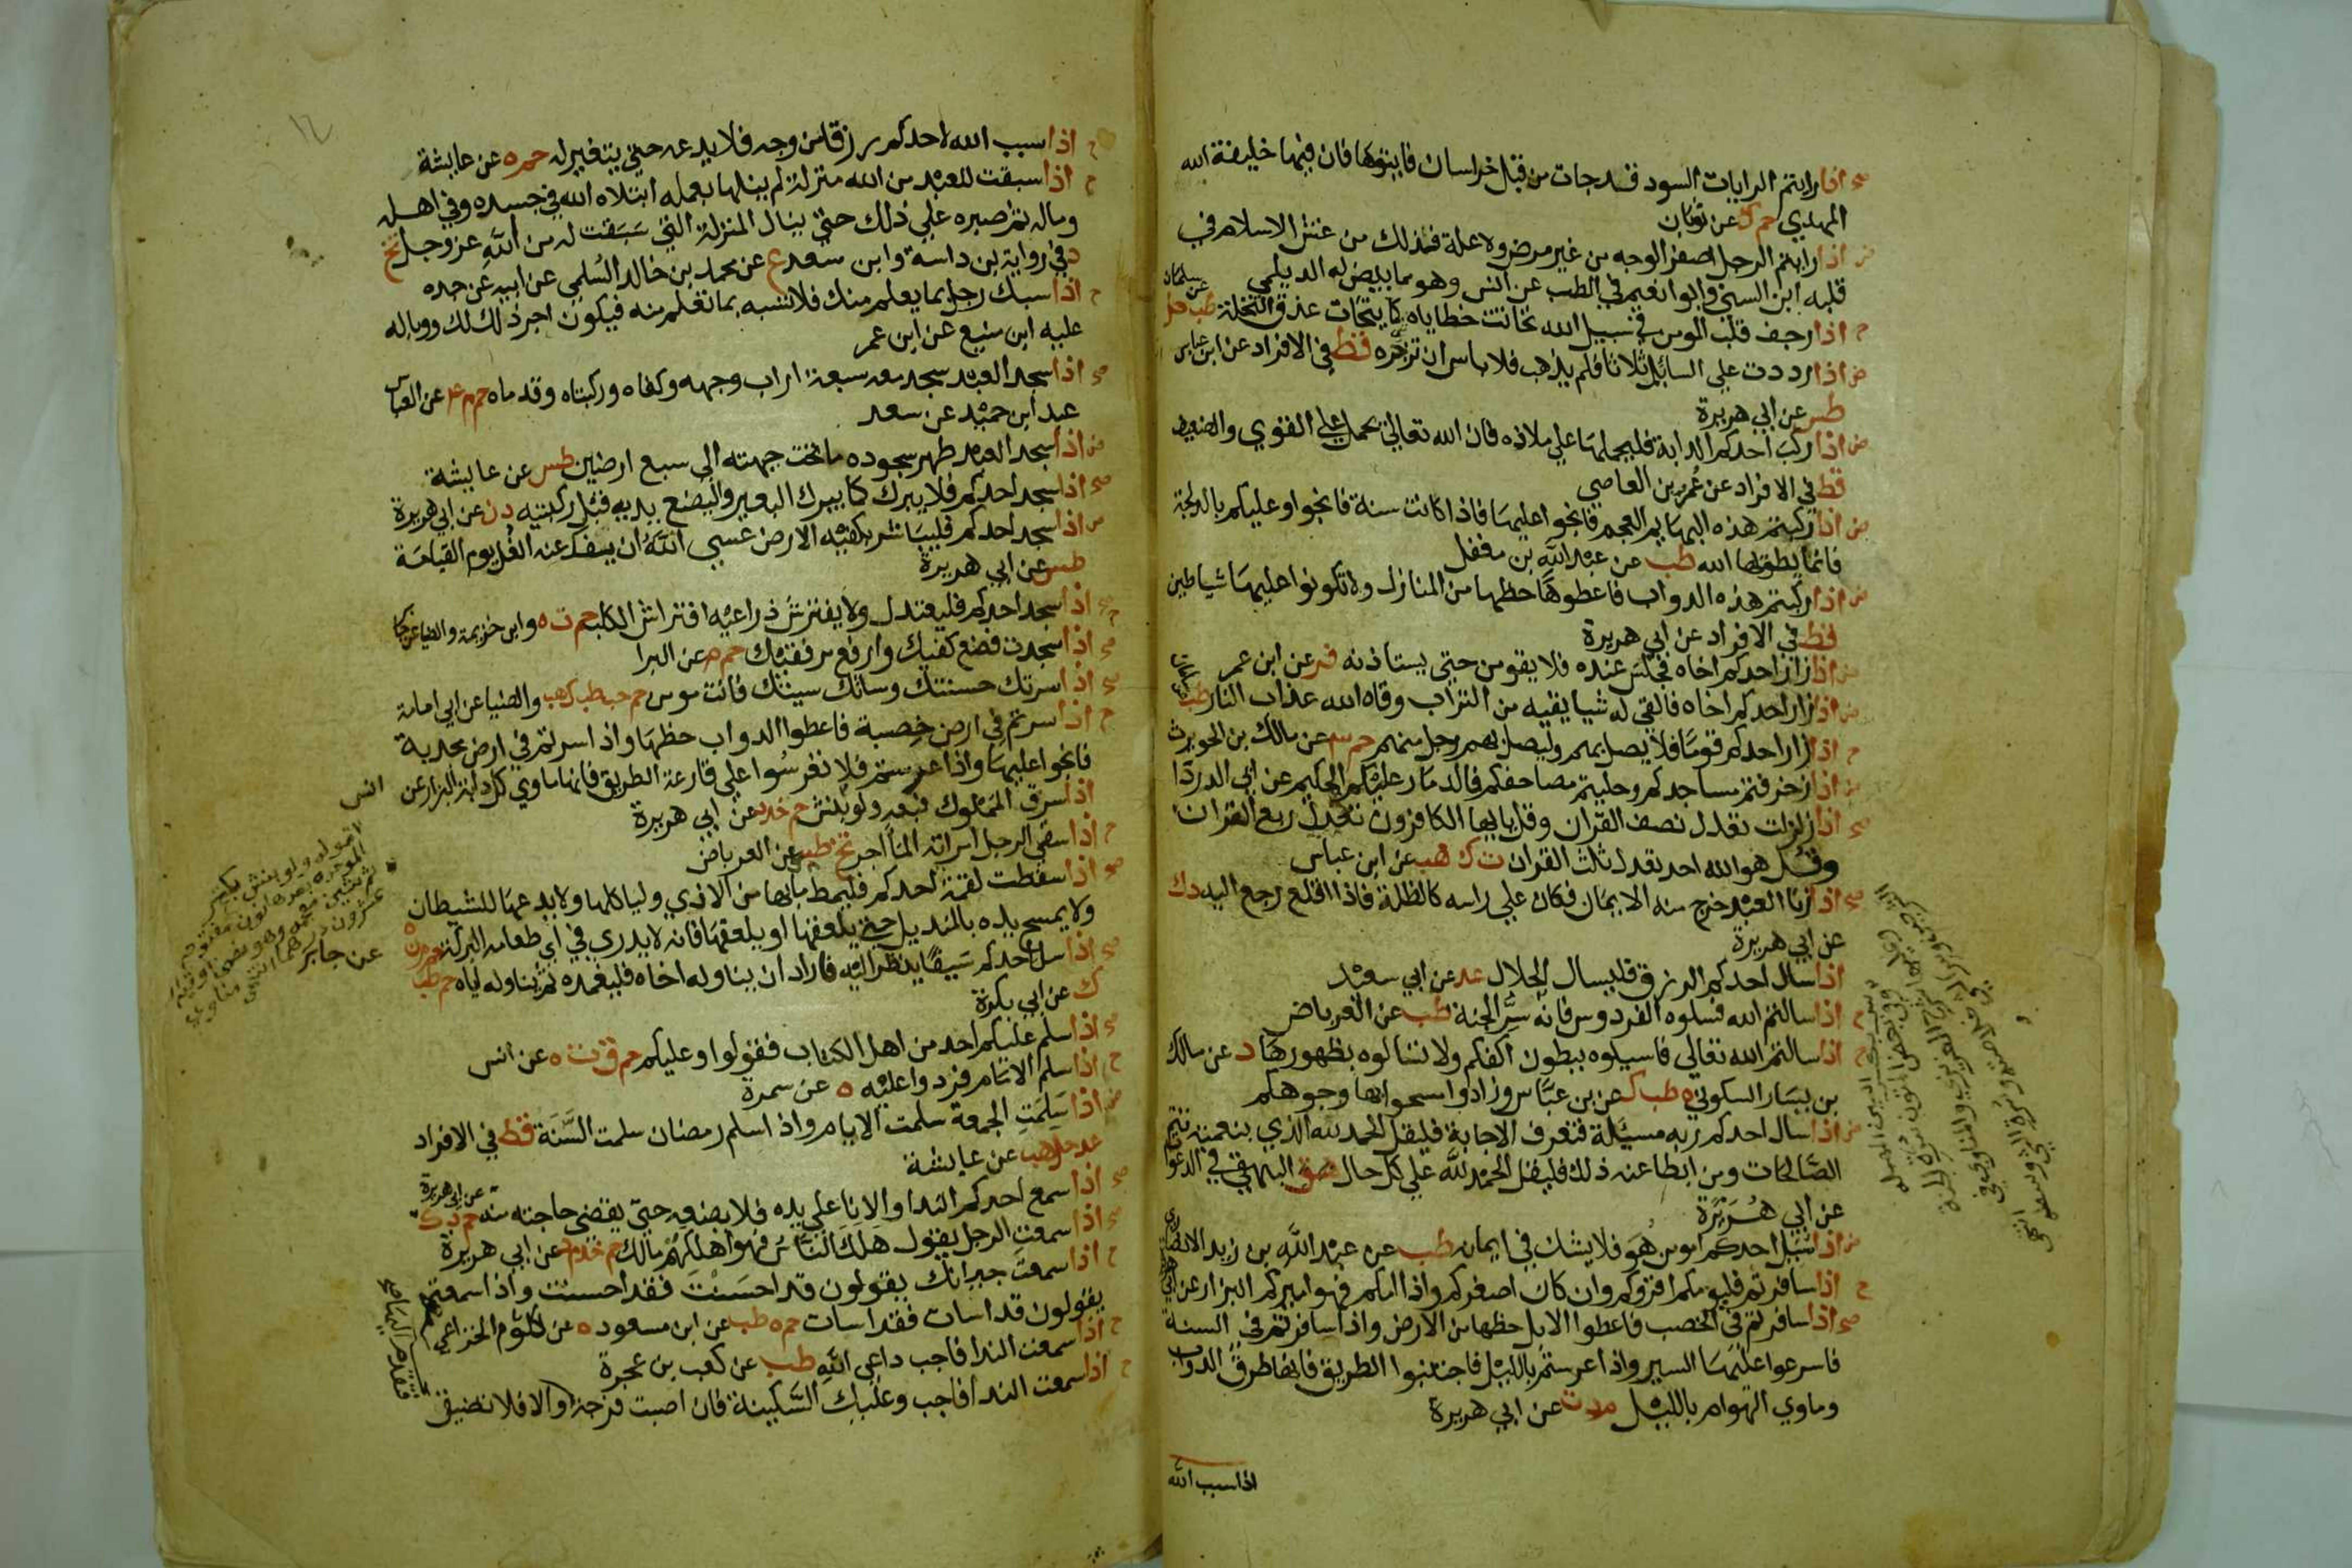 صح اذا رايتم الرايات السود قد جات من قبل خراسان فايتوها فان فيها خليفة الله
المهدي حم ك عن ثوبان
ض اذا رايتم الرجل اصفر الوجه من غير مرض ولا علة فذلك من غش الاسلام في
قلبه ابن السني وابو نعيم في الطب عن انس وهو مما بيض له الديلمي
ح اذا رجف قلب المومن في سبيل الله تحاتت خطاياه كما يتحات عذق النخلة طب حل عن سلمان
ض اذا رددت علي السائل ثلاثا فلم يذهب فلا باس ان تزبره قط في الافراد عن ابن عباس
طس عن ابي هريرة
ض اذا ركب احدكم الدابة فليحملها علي ملاذه فان الله تعالي يحمل علي القوي والضعيف
قط في الافراد عن عمرو بن العاصي
ض اذا ركبتم هذه البهايم العجم فانجوا عليها فاذا كانت سنة فانجوا وعليكم بالدلجة
فانما يطويها الله طب عن عبد الله بن مغفل
ض اذا ركبتم هذه الدواب فاعطوها حظها من المنازل ولا تكونوا عليها شياطين
قط في الافراد عن ابي هريرة
ض اذا زار احدكم اخاه فجلس عنده فلا يقومن حتي يستاذنه فر عن ابن عمر
ض اذا زار احدكم اخاه فالقي له شيا يقيه من التراب وقاه الله عذاب النار طب
ح اذا زار احدكم قوما فلا يصل بهم وليصل بهم رجل منهم حم عن مالك بن الحويرث
ض اذا زخرفتم مساجدكم وحليتم مصاحفكم فالدمار عليكم الحكيم عن ابي الدردا
صح اذا زلزلت تعدل نصف القران وقل يا ايها الكافرون تعدل ربع القران
وقل هو الله احد تعدل ثلث القران ت ك هب عن ابن عباس
صح اذا زنا العبد خرج منه الايمان فكان علي راسه كالظلة فاذا اقلع رجع اليه د ك
عن ابي هريرة
اذا سال احدكم الرزق فليسال الحلال عد عن ابي سعيد
ح اذا سالتم الله فسلوه الفردوس فانه سر الجنة طب عن العرباض
ح اذا سالتم الله تعالي فاسيلوه ببطون اكفكم ولا تسالوه بظهورها د عن مالك
بن يسار السكوني ه طب ك عن بن عباس وزادوا امسحوا بها وجوهكم
ض اذا سال احدكم ربه مسئلة فتعرف الاجابة فليقل الحمد لله الذي بنعمته تتم
الصالحات ومن ابطا عنه ذلك فليقل الحمد لله علي كل حال البيهقي في الدعوات
عن ابي هريرة
ض اذا سئل احدكم امومن هو فلا يشك في ايمانه طب عن عبد الله بن زيد الانصاري
ح اذا سافرتم فليومكم اقروكم وان كان اصغركم واذا امكم فهو اميركم البزار عن ابي هريرة
صح اذا سافرتم في الخصب فاعطوا الابل حظها من الارض واذا سافرتم في السنة
فاسرعوا عليها السير واذا عرستم بالليل فاجتنبوا الطريق فانها طرق الدواب
وماوي الهوام بالليل م د ت عن ابي هريرة
اذا سبب الله
ح اذا سبب الله لاحدكم رزقا من وجه فلا يدعه حتي يتغير له حم ه عن عايشة
ح اذا سبقت للعبد من الله منزلة لم ينلها بعمله ابتلاه الله في جسده وفي اهله
وماله ثم صبره علي ذلك حتي ينال المنزلة التي سبقت له من الله عز وجل تخ
د في رواية بن داسة وابن سعد ع عن محمد بن خالد السلمي عن ابيه عن جده
ح اذا سبك رجل بما يعلم منك فلا تسبه بما تعلم منه فيكون اجر ذلك لك ووباله
عليه ابن منيع عن ابن عمر
صح اذا سجد العبد سجد معه سبعة اراب وجهه وكفاه وركبتاه وقدماه حم م ع عن العباس
عبد ابن حميد عن سعد
ض اذا سجد العبد طهر سجوده ما تحت جبهته الي سبع ارضين طس عن عايشة
صح اذا سجد احدكم فلا يبرك كما يبرك البعير وليضع يديه قبل ركبتيه د ن عن ابي هريرة
ض اذا سجد احدكم فليباشر بكفيه الارض عسي الله ان يفك عنه الغل يوم القيامة
طس عن ابي هريرة
صح اذا سجد احدكم فليعتدل ولا يفترش ذراعيه افتراش الكلب حم ت ه وابن خزيمة والضيا عن جابر
صح اذا سجدت فضع كفيك وارفع مرفقيك حم م عن البرا
صح اذا سرتك حسنتك وساتك سيئتك فانت مومن حم حب طب ك هب والضيا عن ابي امامة
ح اذا سرتم في ارض خصبة فاعطوا الدواب حظها واذا سرتم في ارض مجدبة
فانجوا عليها واذا عرستم فلا تعرسوا علي قارعة الطريق فانها ماوي كل دابة البزار عن انس
اذا سرق المملوك فبعه ولو بنش حم خد د عن ابي هريرة
ح اذا سقي الرجل امراته الما اجر تخ طب عن العرباض
صح اذا سقطت لقمة احدكم فليمط ما بها من الاذي ولياكلها ولا يدعها للشيطان
ولا يمسح يده بالمنديل حتي يلعقها او يلعقها فانه لا يدري في اي طعامه البركة حم م ن ه عن جابر
صح اذا سل احدكم سيفا ينظر اليه فاراد ان يناوله اخاه فليغمده ثم يناوله اياه حم طب
ك عن ابي بكرة
صح اذا سلم عليكم احد من اهل الكتاب فقولوا وعليكم حم ق ت ه عن انس
ح اذا سلم الامام فردوا عليه ه عن سمرة
ض اذا سلمت الجمعة سلمت الايام واذا سلم رمضان سلمت السنة قط في الافراد
عد حل هب عن عايشة
صح اذا سمع احدكم الندا والانا علي يده فلا يضعه حتي يقضي حاجته منه حم د ك عن ابي هريرة
صح اذا سمعت الرجل يقول هلك الناس فهو اهلكهم مالك حم خد م د عن ابي هريرة
ح اذا سمعت جيرانك يقولون قد احسنت فقد احسنت واذا سمعتهم
يقولون قد اسات فقد اسات حم ه طب عن ابن مسعود ه عن كلثوم الخزاعي
ح اذا سمعت الندا فاجب داعي الله طب عن كعب بن عجرة
ح اذا سمعت الندا فاجب وعليك السكينة فان اصبت فرجة والا فلا تضيق